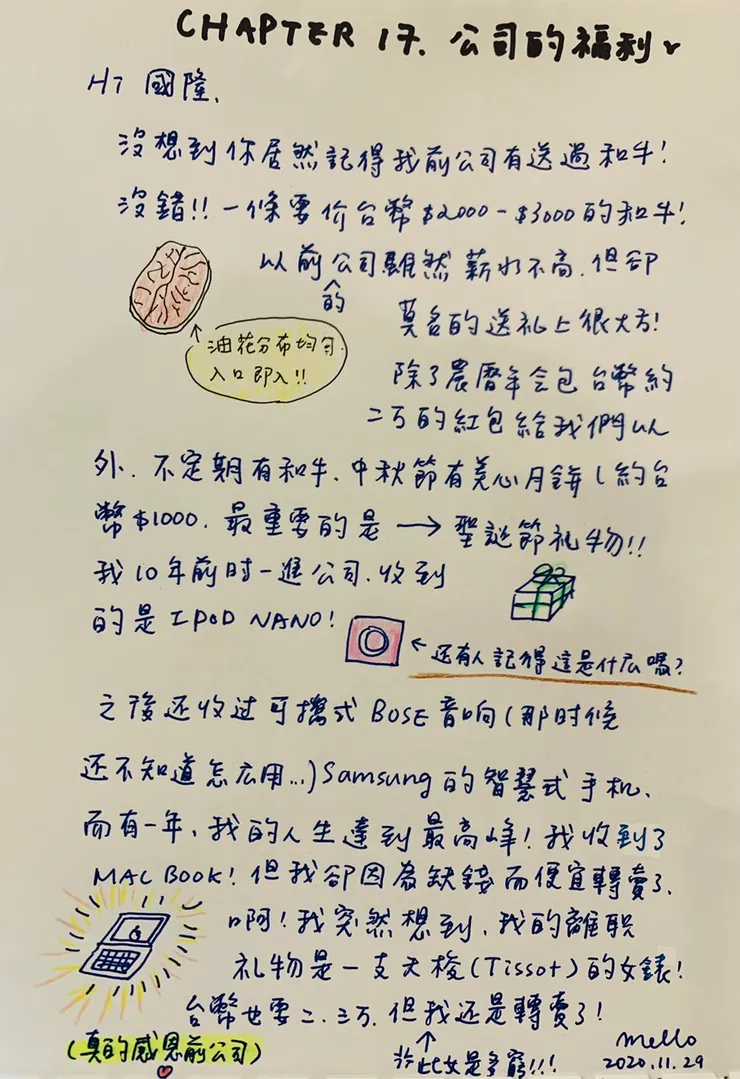 CHAPTER 17. 公司的福利
Hi 國隆,
沒想到你居然記得我前公司有送過和牛!
沒錯!! 一條要價台幣$2000-$3000的和牛!
以前的公司雖然薪水不高,但卻
莫名的送礼上很大方!
油花分布均勻.
入口即入!!
除了農曆年会包台幣約
二万的紅包給我們以
外.不定期有和牛.中秋節有美心月餅(約台
幣$1000.最重要的是→聖誕節礼物!!
我10年前时一進公司.收到
的是IPOD NANO!
←还有人記得這是什広嗎?
之後还收过可攜式BOSE音响(那时候
还不知道怎広用...)Samsung的智慧式手机、
而有一年、我的人生達到最高峰!我收到了
MAC BOOK!但我卻因為缺錢而便宜轉賣了.
啊!我突然想到、我的離职
礼物是一支天梭(Tissot)的女錶!
台幣也要二、三万.但我还是轉賣了!
(真的感恩前公司)
此女是多窮!!!
Mello
2020.11.29